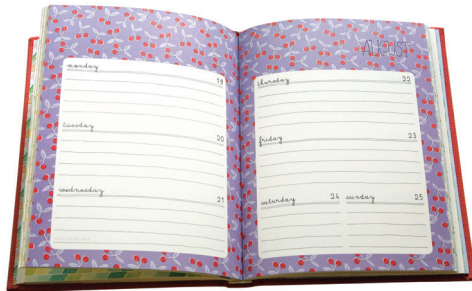 monday 19
tuesday 20
wednesday 21
AUGUST
thursday 22
friday 23
saturday 24
sunday 25